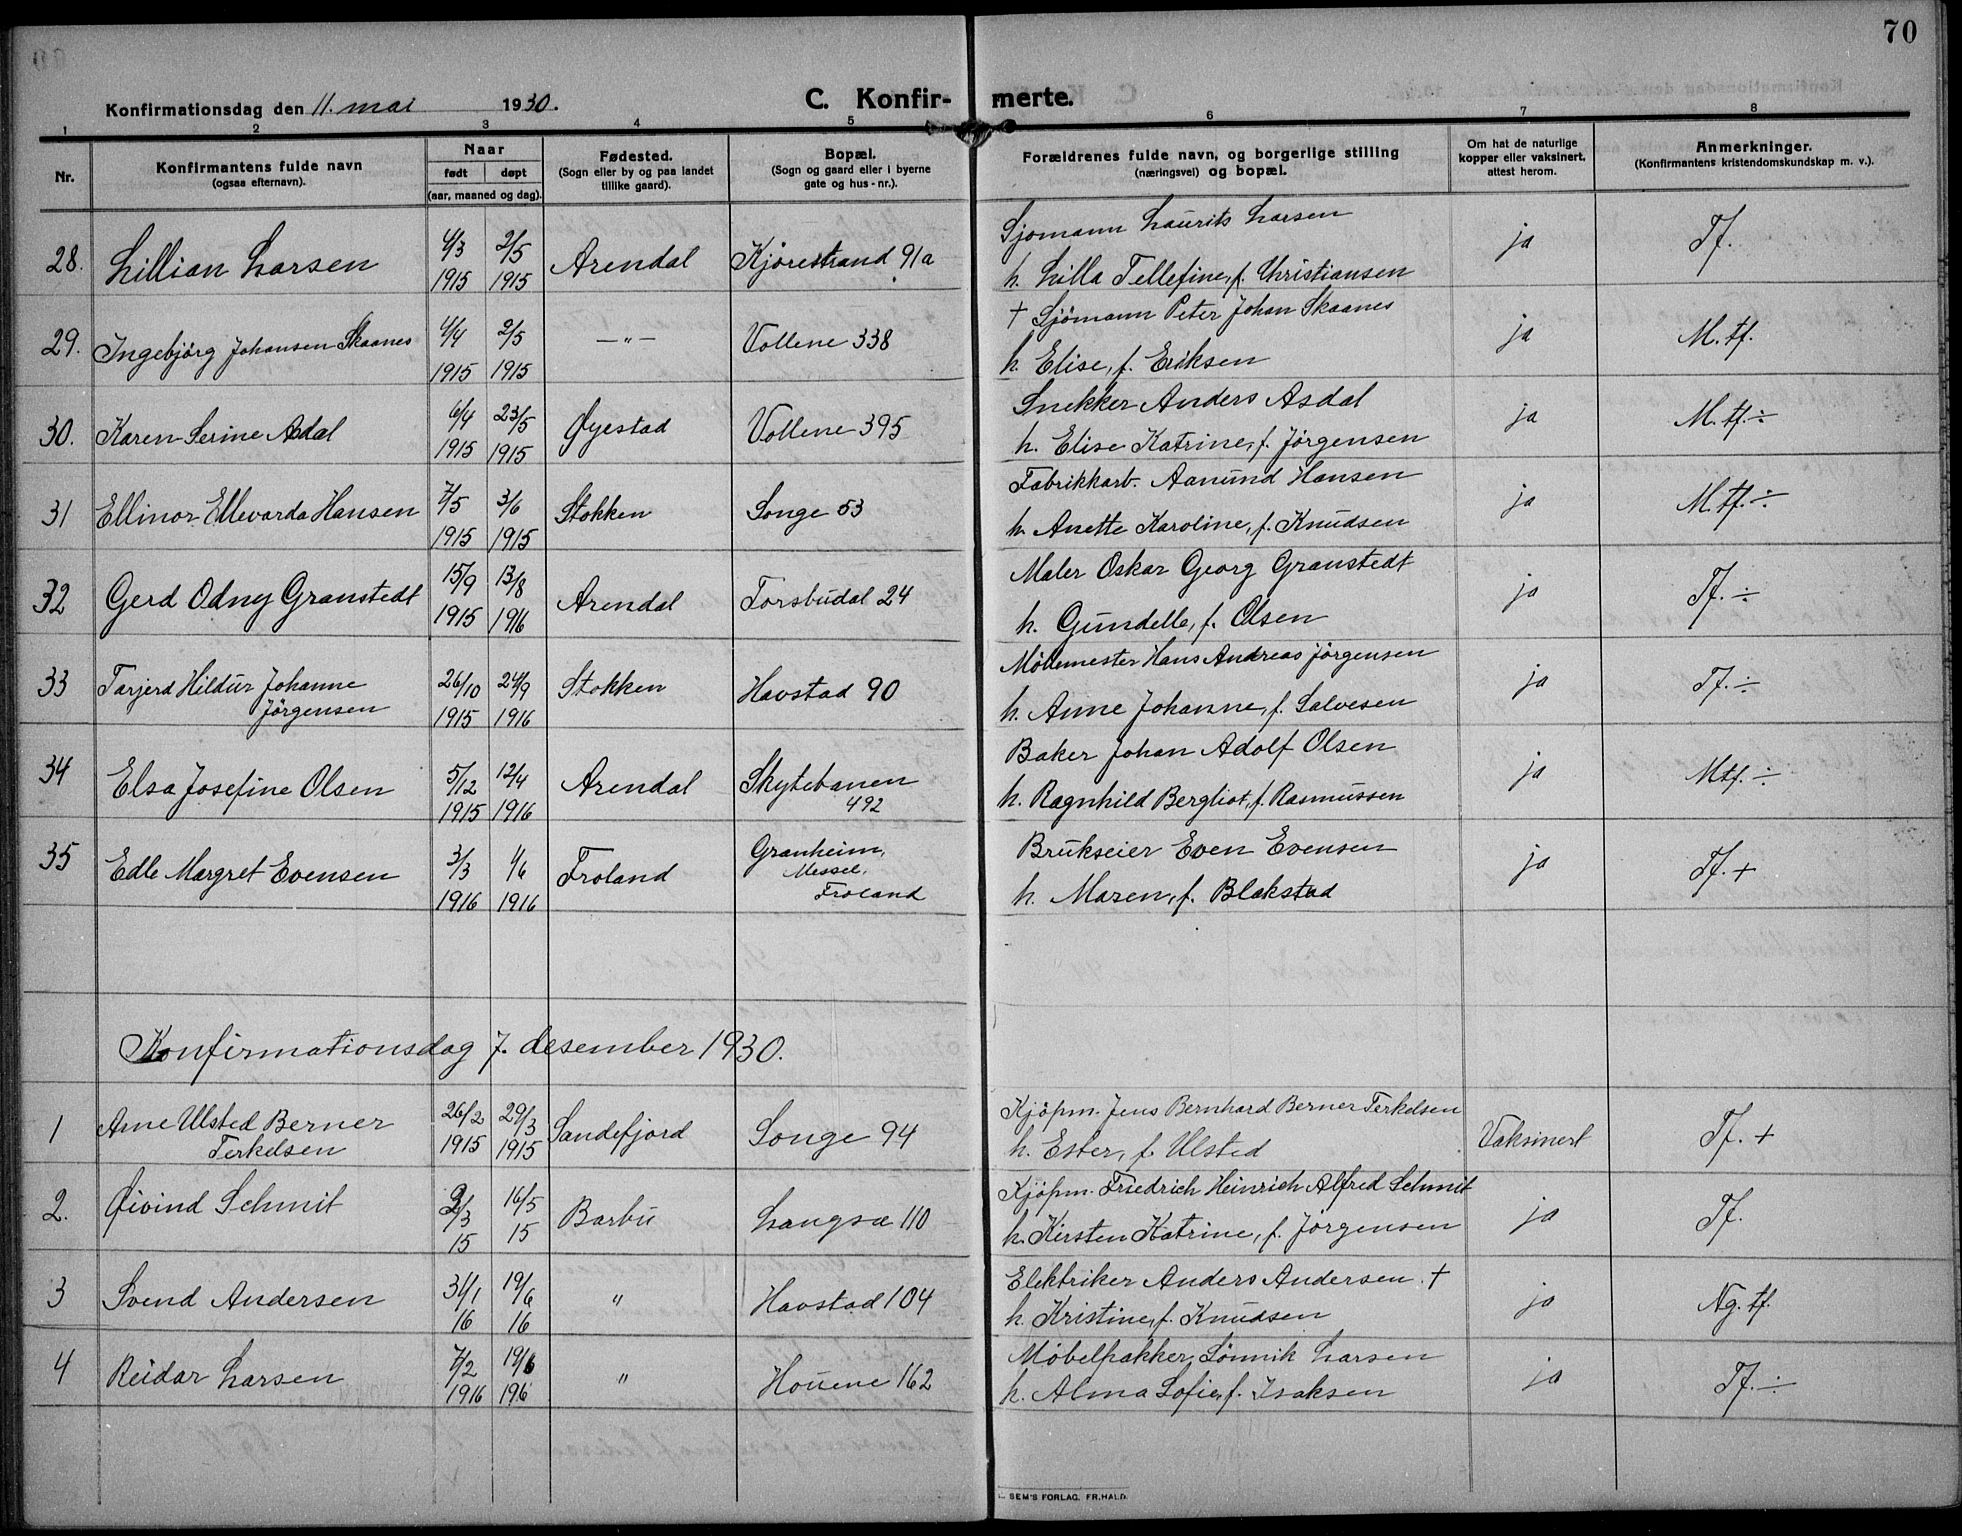 70
Konfirmationsdag den 11. mai 1930.
C. Konfir- merte.
1 2 3 4 5 6 7 8
Nr.
Konfirmantens fulde navn
(ogsaa efternavn).
Naar
født døpt
(aar, maaned og dag).
Fødested.
(Sogn eller by og paa landet
tillike gaard).
Bopæl.
(Sogn og gaard eller i byerne
gate og hus-nr.).
Forældrenes fulde navn, og borgerlige stilling
(næringsvei) og bopæl.
Om hat de naturlige
kopper eller vaksinert,
attest herom.
Anmerkninger.
(Konfirmantens kristendomskundskap m. v.).
28. Lillian Larsen 4/3 1915 2/5 1915 Arendal Kjørestrand 91a
Sjømann Laurits Larsen
h. Lilla Tellefine, f. Christiansen
ja Tf.
29. Ingebjörg Johansen Skaanes 4/4 1915 2/5 1915 —"— Vollene 338
† Sjömann Peter Johan Skaanes
h. Elise, f. Eriksen
ja M. tf.
30. Karen Serine Asdal 6/4 1915 23/5 1915 Øyestad Vollene 395
Snekker Anders Asdal
h. Elise Katrine, f. Jörgensen
ja M. tf. ÷
31 Ellinor Ellevarda Hansen 7/5 1915 3/6 1915 Stokken Songe 53
Fabrikkarb. Aanund Hansen
h. Anette Karoline, f. Knudsen
ja M. tf. ÷
32 Gerd Odny Granstedt 15/9 1915 13/8 1916 Arendal Torsbudal 24
Maler Oskar Georg Granstedt
h. Gundelle, f. Olsen
ja Tf. ÷
33 Tarjerd Hildur Johanne
Jörgensen 26/10 1915 24/9 1916 Stokken Havstad 90
Möllemester Hans Andreas Jörgensen
h. Anne Johanne, f. Salvesen
ja Tf. ÷
34 Elsa Josefine Olsen 5/12 1915 12/4 1916 Arendal Skytebanen
492
Baker Johan Adolf Olsen
h. Ragnhild Bergliot, f. Rasmussen
ja Mtf. ÷
35 Edle Margret Evensen 3/3 1916 1/6 1916 Froland Granheim,
Messel,
Froland
Brukseier Even Evensen
h. Maren, f. Blakstad
ja Tf. +
Konfirmationsdag 7. desember 1930.
1 Arne Ulsted Berner
Terkelsen 26/2 1915 29/3 1915 Sandefjord Songe 94
Kjöpm. Jens Bernhard Berner Terkelsen
h. Ester, f. Ulsted
Vaksinert Tf. +
2. Øivind Schmit 2/3 15 16/5 15 Barbu Langsæ 110
Kjöpm. Friedrich Heinrich Alfred Schmit
h. Kirsten Katrine, f. Jörgensen
ja Tf.
3 Svend Andersen 31/1 16 19/6 16 " Havstad 104
Elektriker Anders Andersen. †
h. Kristine, f. Knudsen
ja Ng. tf.
4 Reidar Larsen 7/2 1916 19/6 1916 " Houene 162
Möbelpakker Lönnik Larsen
h. Alma Sofie, f. Isaksen
ja Tf. ÷
SEM'S FORLAG, FR.HALD.